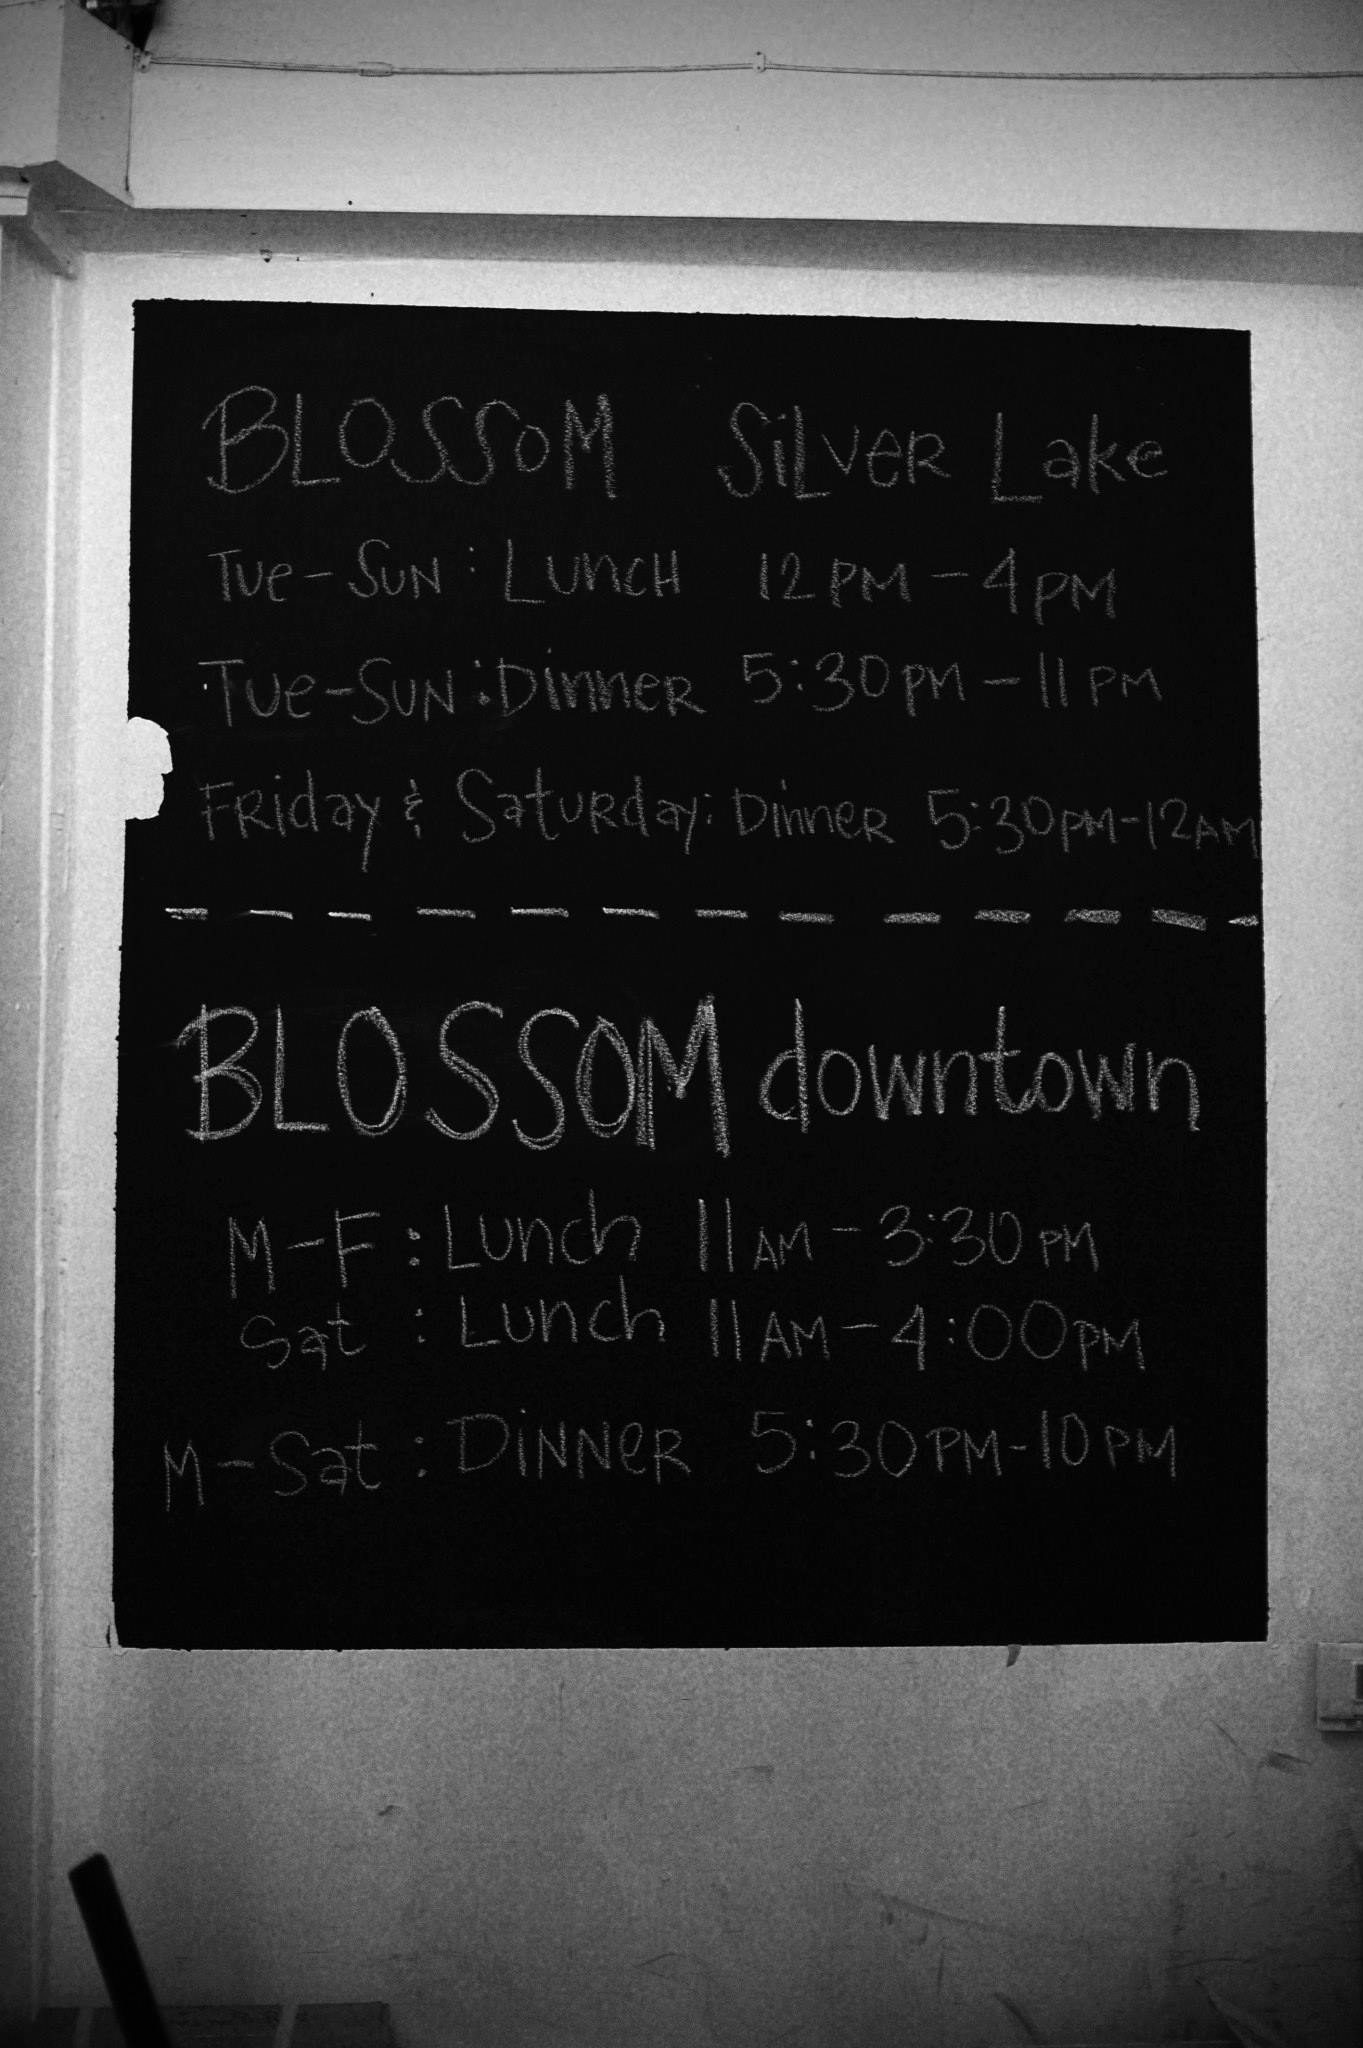 BLOSSOM SiLVER Lake
Tue-Sun: Lunch 12PM-4PM
Tue-Sun: Dinner 5:30PM-11PM
Friday & Saturday: Dinner 5:30PM-12AM
BLOSSOM downtown
M-F: Lunch 11AM-3:30PM
Sat: Lunch 11AM-4:00PM
M-Sat: DiNNeR 5:30PM-10PM